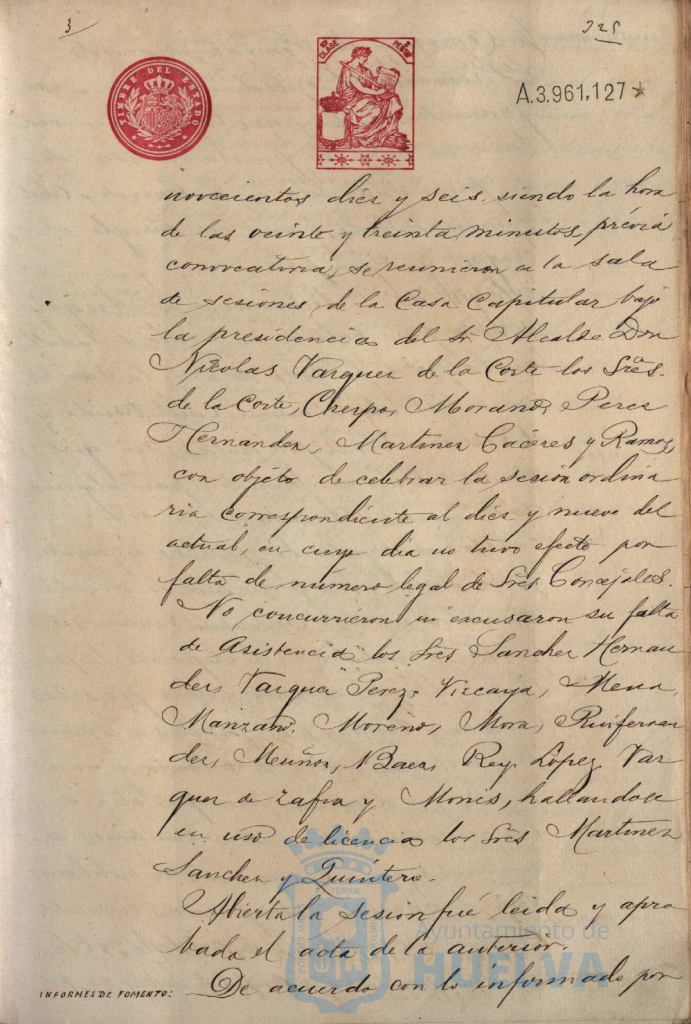 3
325
TIMBRE DEL ESTADO
CLASE
A.3.961,127*
novecientos diez y seis, siendo la hora
de las veinte y treinta minutos, prévia
convocatoria, se reunieron en la sala
de sesiones de la Casa Capitular bajo
la presidencia del Sr. Alcalde Don
Nicolas Vazquez de la Corte los Sres.
de la Corte, Crespo, Morano, Perez
Hernandez, Martinez Cáceres y Ramos,
con objeto de celebrar la sesión ordina
ria correspondiente al diez y nueve del
actual, en cuyo dia no tuvo efecto por
falta de número legal de Sres. Concejales.
No concurrieron ni excusaron su falta
de Asistencia los Sres Sanchez Hernan
dez, Vazquez Perez, Vizcaya, Mena,
Manzano, Moreno, Mora, Ruifernan
dez, Muñoz, Baez, Rey, López, Vaz
quez de Zafra y Monis, hallandose
en uso de licencia los Sres Martinez
Sanchez y Quintero.
Abierta la sesion fué leida y apro
bada el acta de la anterior.
INFORMES DE FOMENTO: De acuerdo con lo informado por
Ayuntamiento de
HUELVA